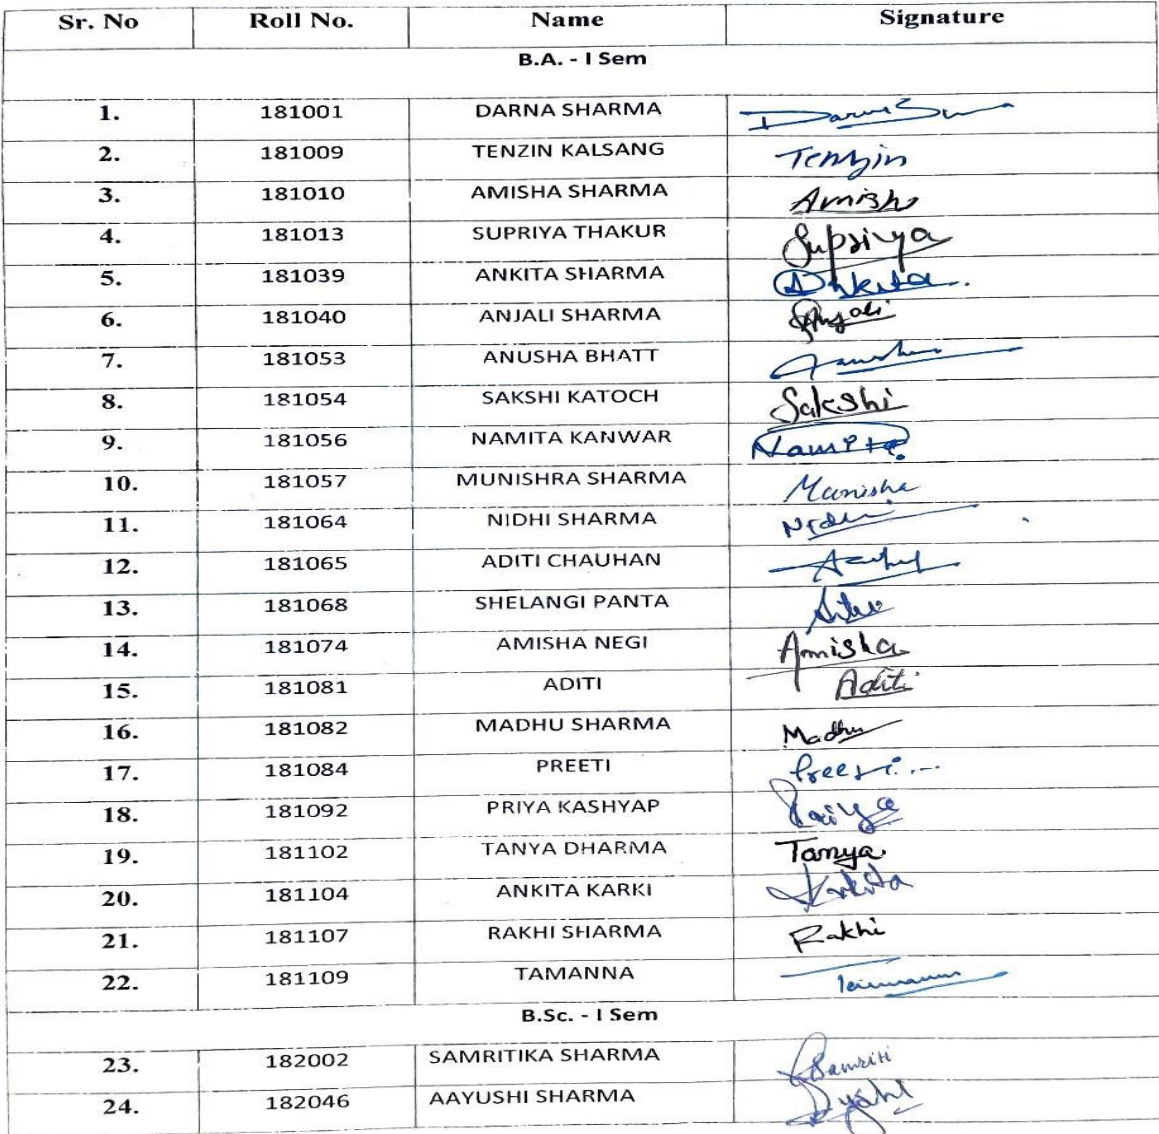 Sr. No Roll No. Name Signature
B.A. - I Sem
1. 181001 DARNA SHARMA
2. 181009 TENZIN KALSANG Tenzin
3. 181010 AMISHA SHARMA Amisha
4. 181013 SUPRIYA THAKUR Supriya
5. 181039 ANKITA SHARMA Ankita
6. 181040 ANJALI SHARMA Anjali
7. 181053 ANUSHA BHATT
8. 181054 SAKSHI KATOCH Sakshi
9. 181056 NAMITA KANWAR Namita
10. 181057 MUNISHRA SHARMA Munisha
11. 181064 NIDHI SHARMA Nidhi
12. 181065 ADITI CHAUHAN
13. 181068 SHELANGI PANTA
14. 181074 AMISHA NEGI Amisha
15. 181081 ADITI Aditi
16. 181082 MADHU SHARMA Madhu
17. 181084 PREETI Preeti
18. 181092 PRIYA KASHYAP Priya
19. 181102 TANYA DHARMA Tanya
20. 181104 ANKITA KARKI Ankita
21. 181107 RAKHI SHARMA Rakhi
22. 181109 TAMANNA Tamanna
B.Sc. - I Sem
23. 182002 SAMRITIKA SHARMA Samriti
24. 182046 AAYUSHI SHARMA